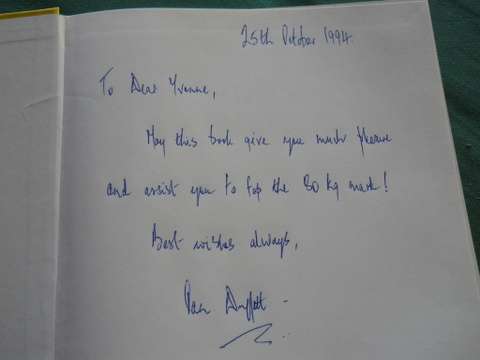 25th October 1994.
To Dear Yvonne,
May this book give you much pleasure
and assist you to top the 80 kg mark!
Best wishes always,